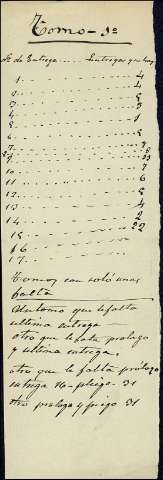 Tomo - 3º
Nº de Entrega.... Entregas que hay
1........4
2........4
3........8
4........3
5........1
6........8
7........8
8........9
9........23
10.......7
11.......6
12.......8
13.......4
14.......2
15.......22
16
17
Tomos con solo una
falta
Un tomo que le falta
ultima entrega —
otro que le falta prologo
y ultima entrega.
otro que le falta prólogo
entrega 16 - pliego. 31
otro prologo y pliego 31